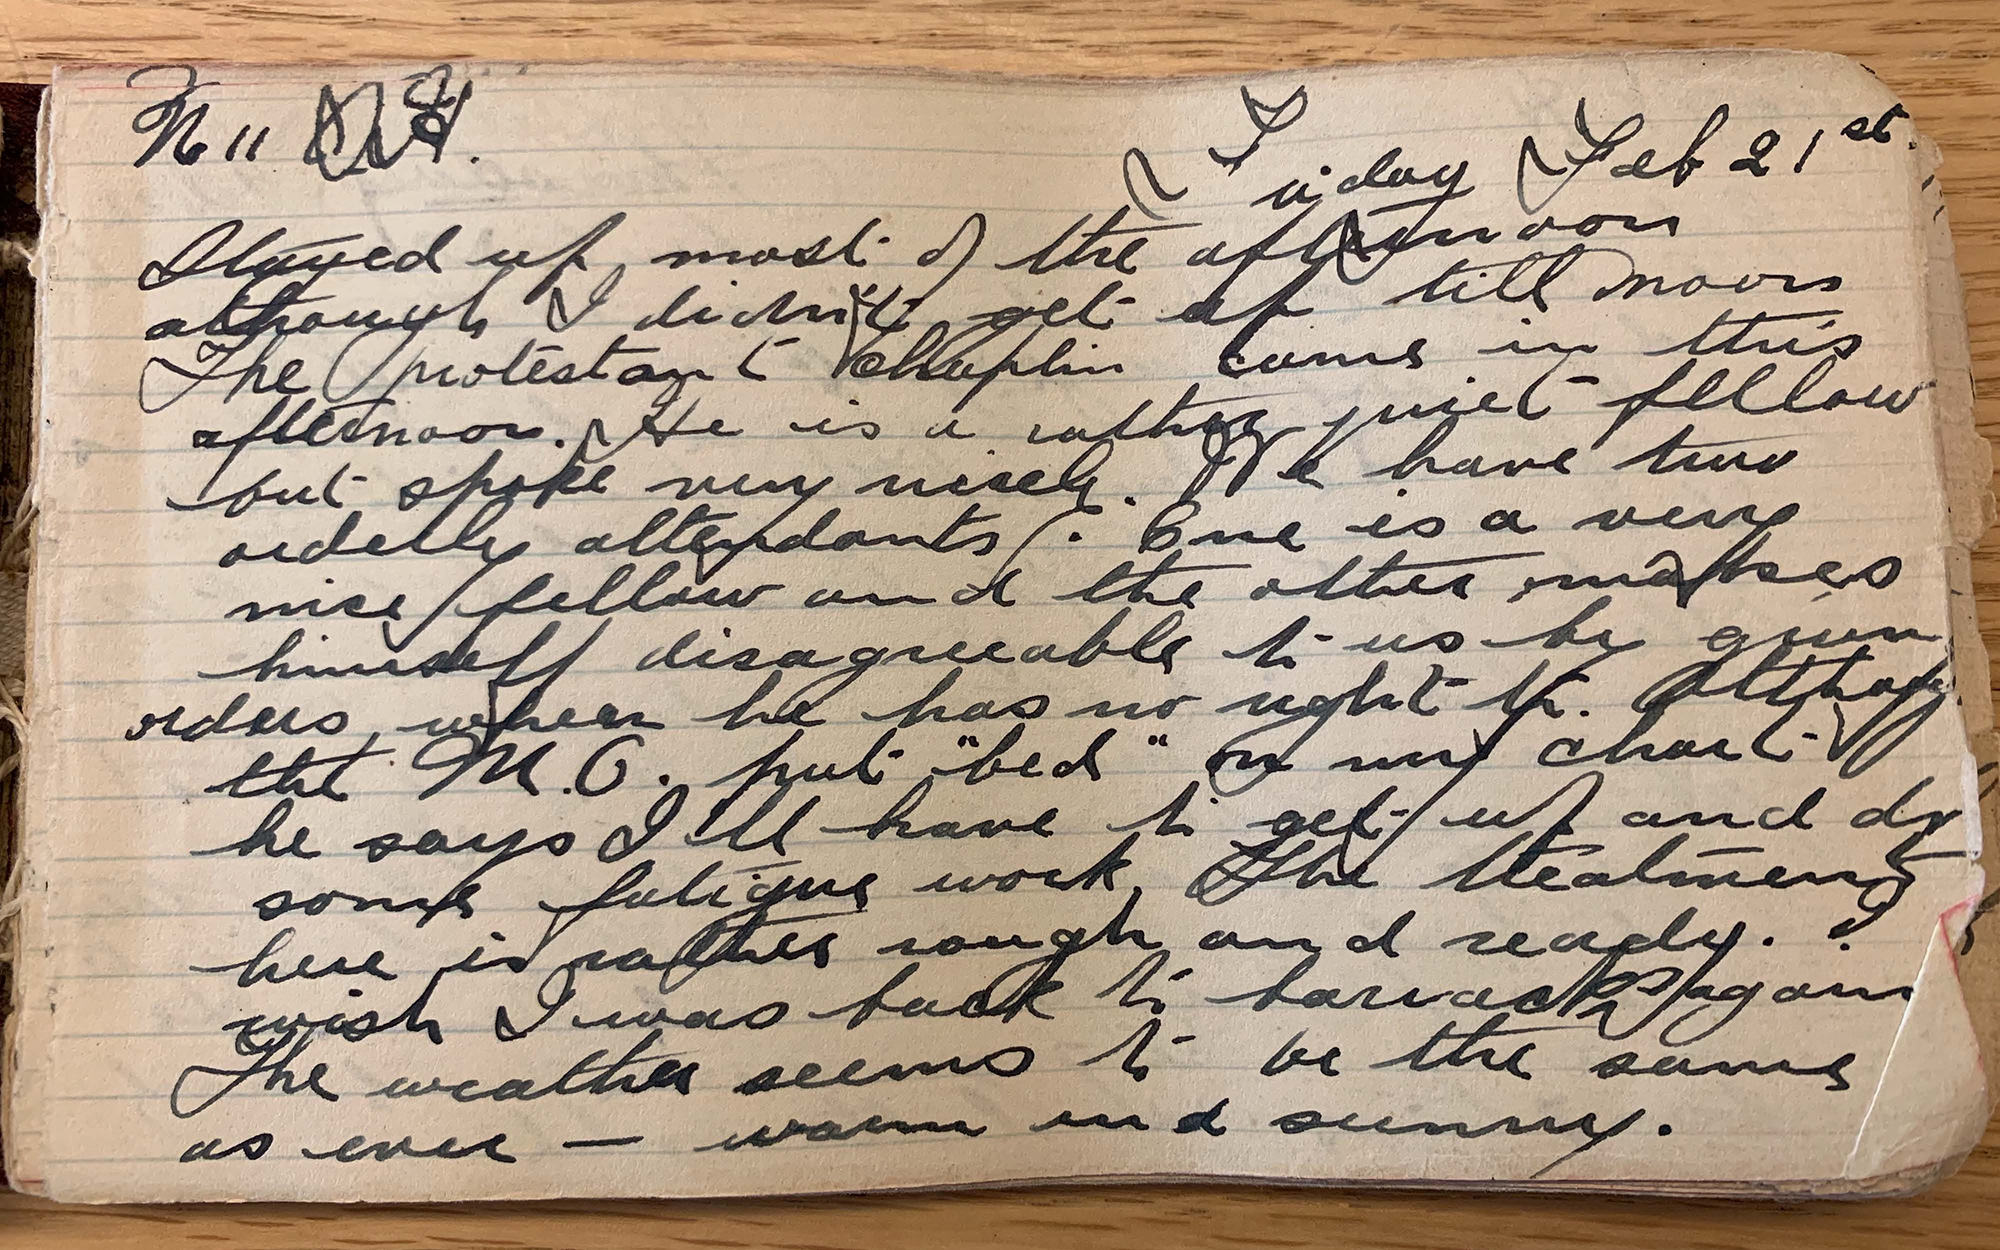 No 11
Friday Feb 21st.
Stayed up most of the afternoon
although I didn't get up till noon
The protestant chaplin came in this
afternoon. He is a rather quiet fellow
but spoke very nicely. We have two
orderly attendants. One is a very
nice fellow and the other makes
himself disagreeable to us by givin
orders when he has no right to. Although
the M.O. put "bed" on my chart
he says I'll have to get up and do
some fatigue work. The treatment
here is rather rough and ready. I
wish I was back to barracks again
The weather seems to be the same
as ever — warm and sunny.